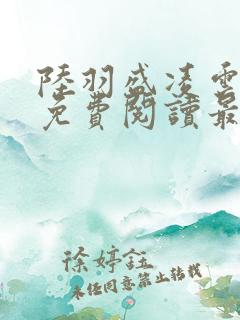 陸羽盛凌雲
免費閱讀最
徐婷鈺
未經同意禁止轉載